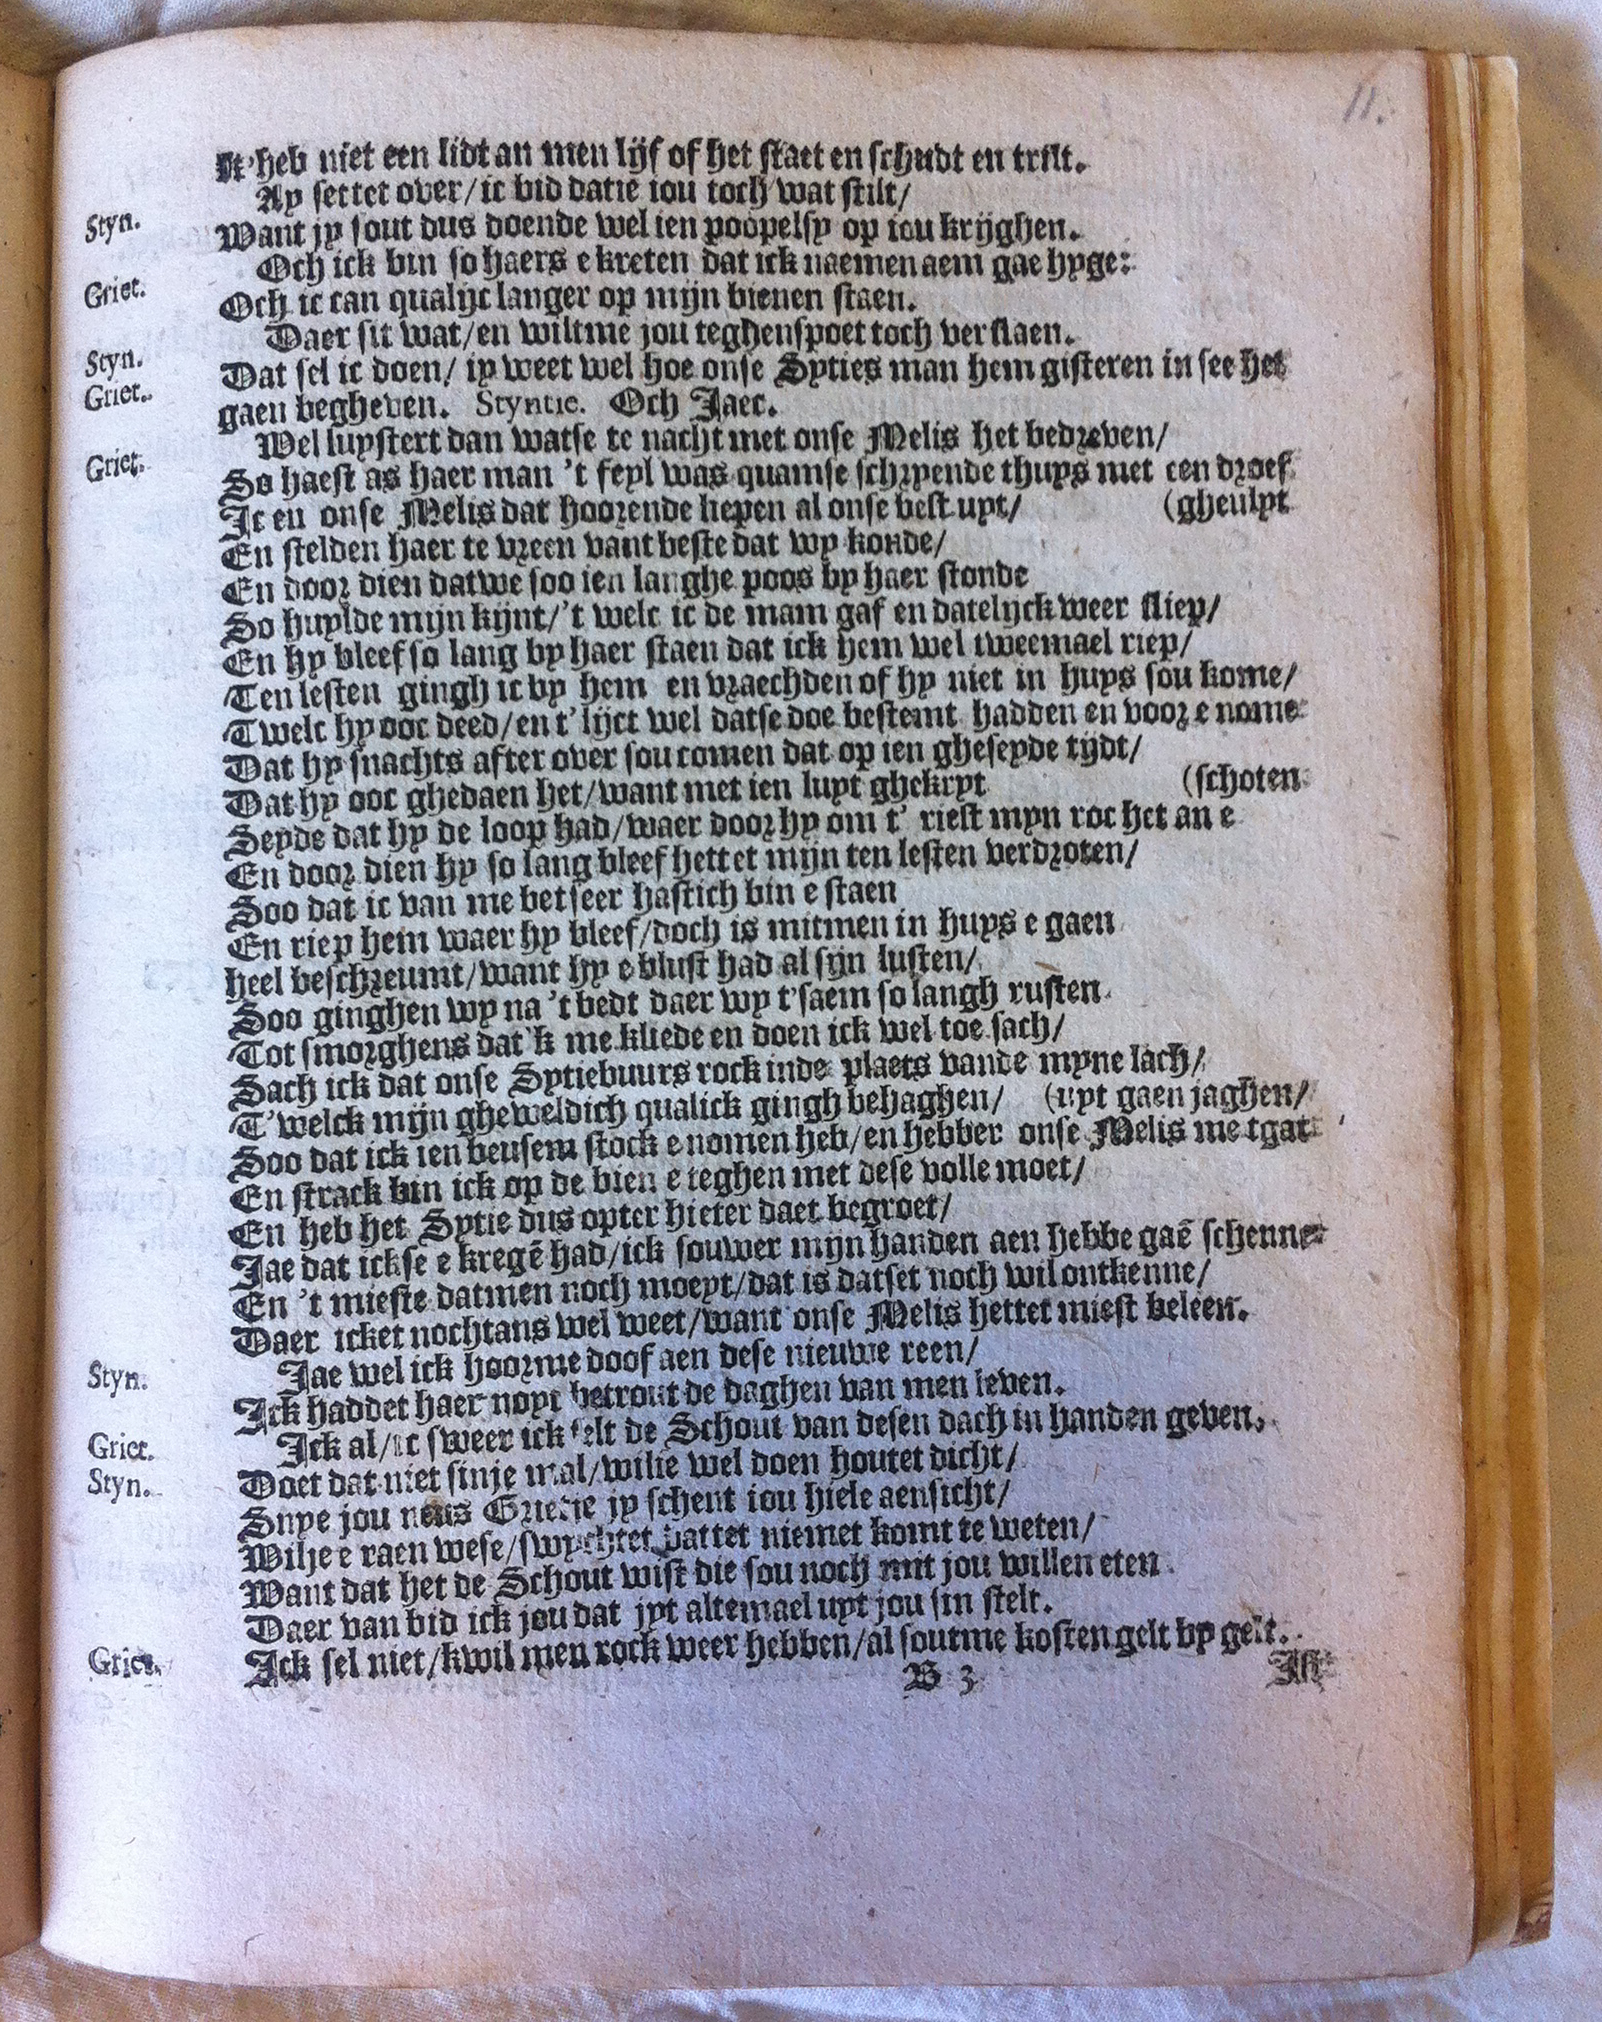 11.
Ik'heb niet een lidt an men lijf of het staet en schudt en trilt.
Styn. Ay settet over/ic bid datie iou toch wat stilt/
Want jy sout dus doende wel ien poopelsy op iou krijghen.
Griet. Och ick bin so haers e kreten dat ick naemen aem gae hyge:
Och ic can qualijc langer op mijn bienen staen.
Styn. Daer sit wat/en wiltme jou teghenspoet toch verslaen.
Griet. Dat sel ic doen/ iy weet wel hoe onse Syties man hem gisteren in see het
gaen begheven. Styntie. Och Jaec.
Griet. Wel luystert dan watse te nacht met onse Melis het bedreven/
So haest as haer man 't seyl was quamse schryende thuys met een droef
Ic en onse Melis dat hoorende liepen al onse best uyt/ (gheuluyt
En stelden haer te vreen vant beste dat wy konde/
En door dien datwe soo ien langhe poos by haer stonde
So huylde mijn kijnt/'t welc ic de mam gaf en datelijck weer sliep/
En hy bleef so lang by haer staen dat ick hem wel tweemael riep/
Ten lesten gingh ic by hem en vraechden of hy niet in huys sou kome/
Twelc hy ooc deed/en t'lijct wel datse doe bestemt hadden en voor e nome
Dat hy snachts after over sou comen dat op ien gheseyde tijdt/
Dat hy ooc ghedaen het/want met ien luyt ghekryt (schoten
Seyde dat hy de loop had/waer door hy om t' riest myn roc het an e
En door dien hy so lang bleef hettet mijn ten lesten verdroten/
Soo dat ic van me bet seer hastich bin e staen
En riep hem waer hy bleef/doch is mitmen in huys e gaen
heel beschreumt/want hy e blust had al sijn lusten/
Soo ginghen wy na 't bedt daer wy t'saem so langh rusten
Tot smorghens dat'k me kliede en doen ick wel toe sach/
Sach ick dat onse Sytiebuurs rock inde plaets vande myne lach/
T'welck mijn gheweldich qualick gingh behaghen/ (uyt gaen jaghen/
Soo dat ick ien beusem stock e nomen heb/en hebber onse Melis me tgat
En strack bin ick op de bien e teghen met dese volle moet/
En heb het Sytie dus opter hieter daet begroet/
Jae dat ickse e kregē had/ick souwer mijn handen aen hebbe gaē schenne
En 't mieste datmen noch moeyt/dat is datset noch wil ontkenne/
Daer icket nochtans wel weet/want onse Melis hettet miest beleen.
Styn. Jae wel ick hoorme doof aen dese nieuwe reen/
Ick haddet haer noyt betrout de daghen van men leven.
Griet. Ick al/ic sweer ick selt de Schout van desen dach in handen geven.
Styn. Doet dat niet sinje mal/wilie wel doen houtet dicht/
Snye jou neus Grietje jy schent iou hiele aensicht/
Wilje e raen wese/swychtet dattet niemet komt te weten/
Want dat het de Schout wist die sou noch mit jou willen eten
Daer van bid ick jou dat jyt altemael uyt jou sin stelt.
Griet. Ick sel niet/kwil men rock weer hebben/al soutme kosten gelt by gelt.
B 3